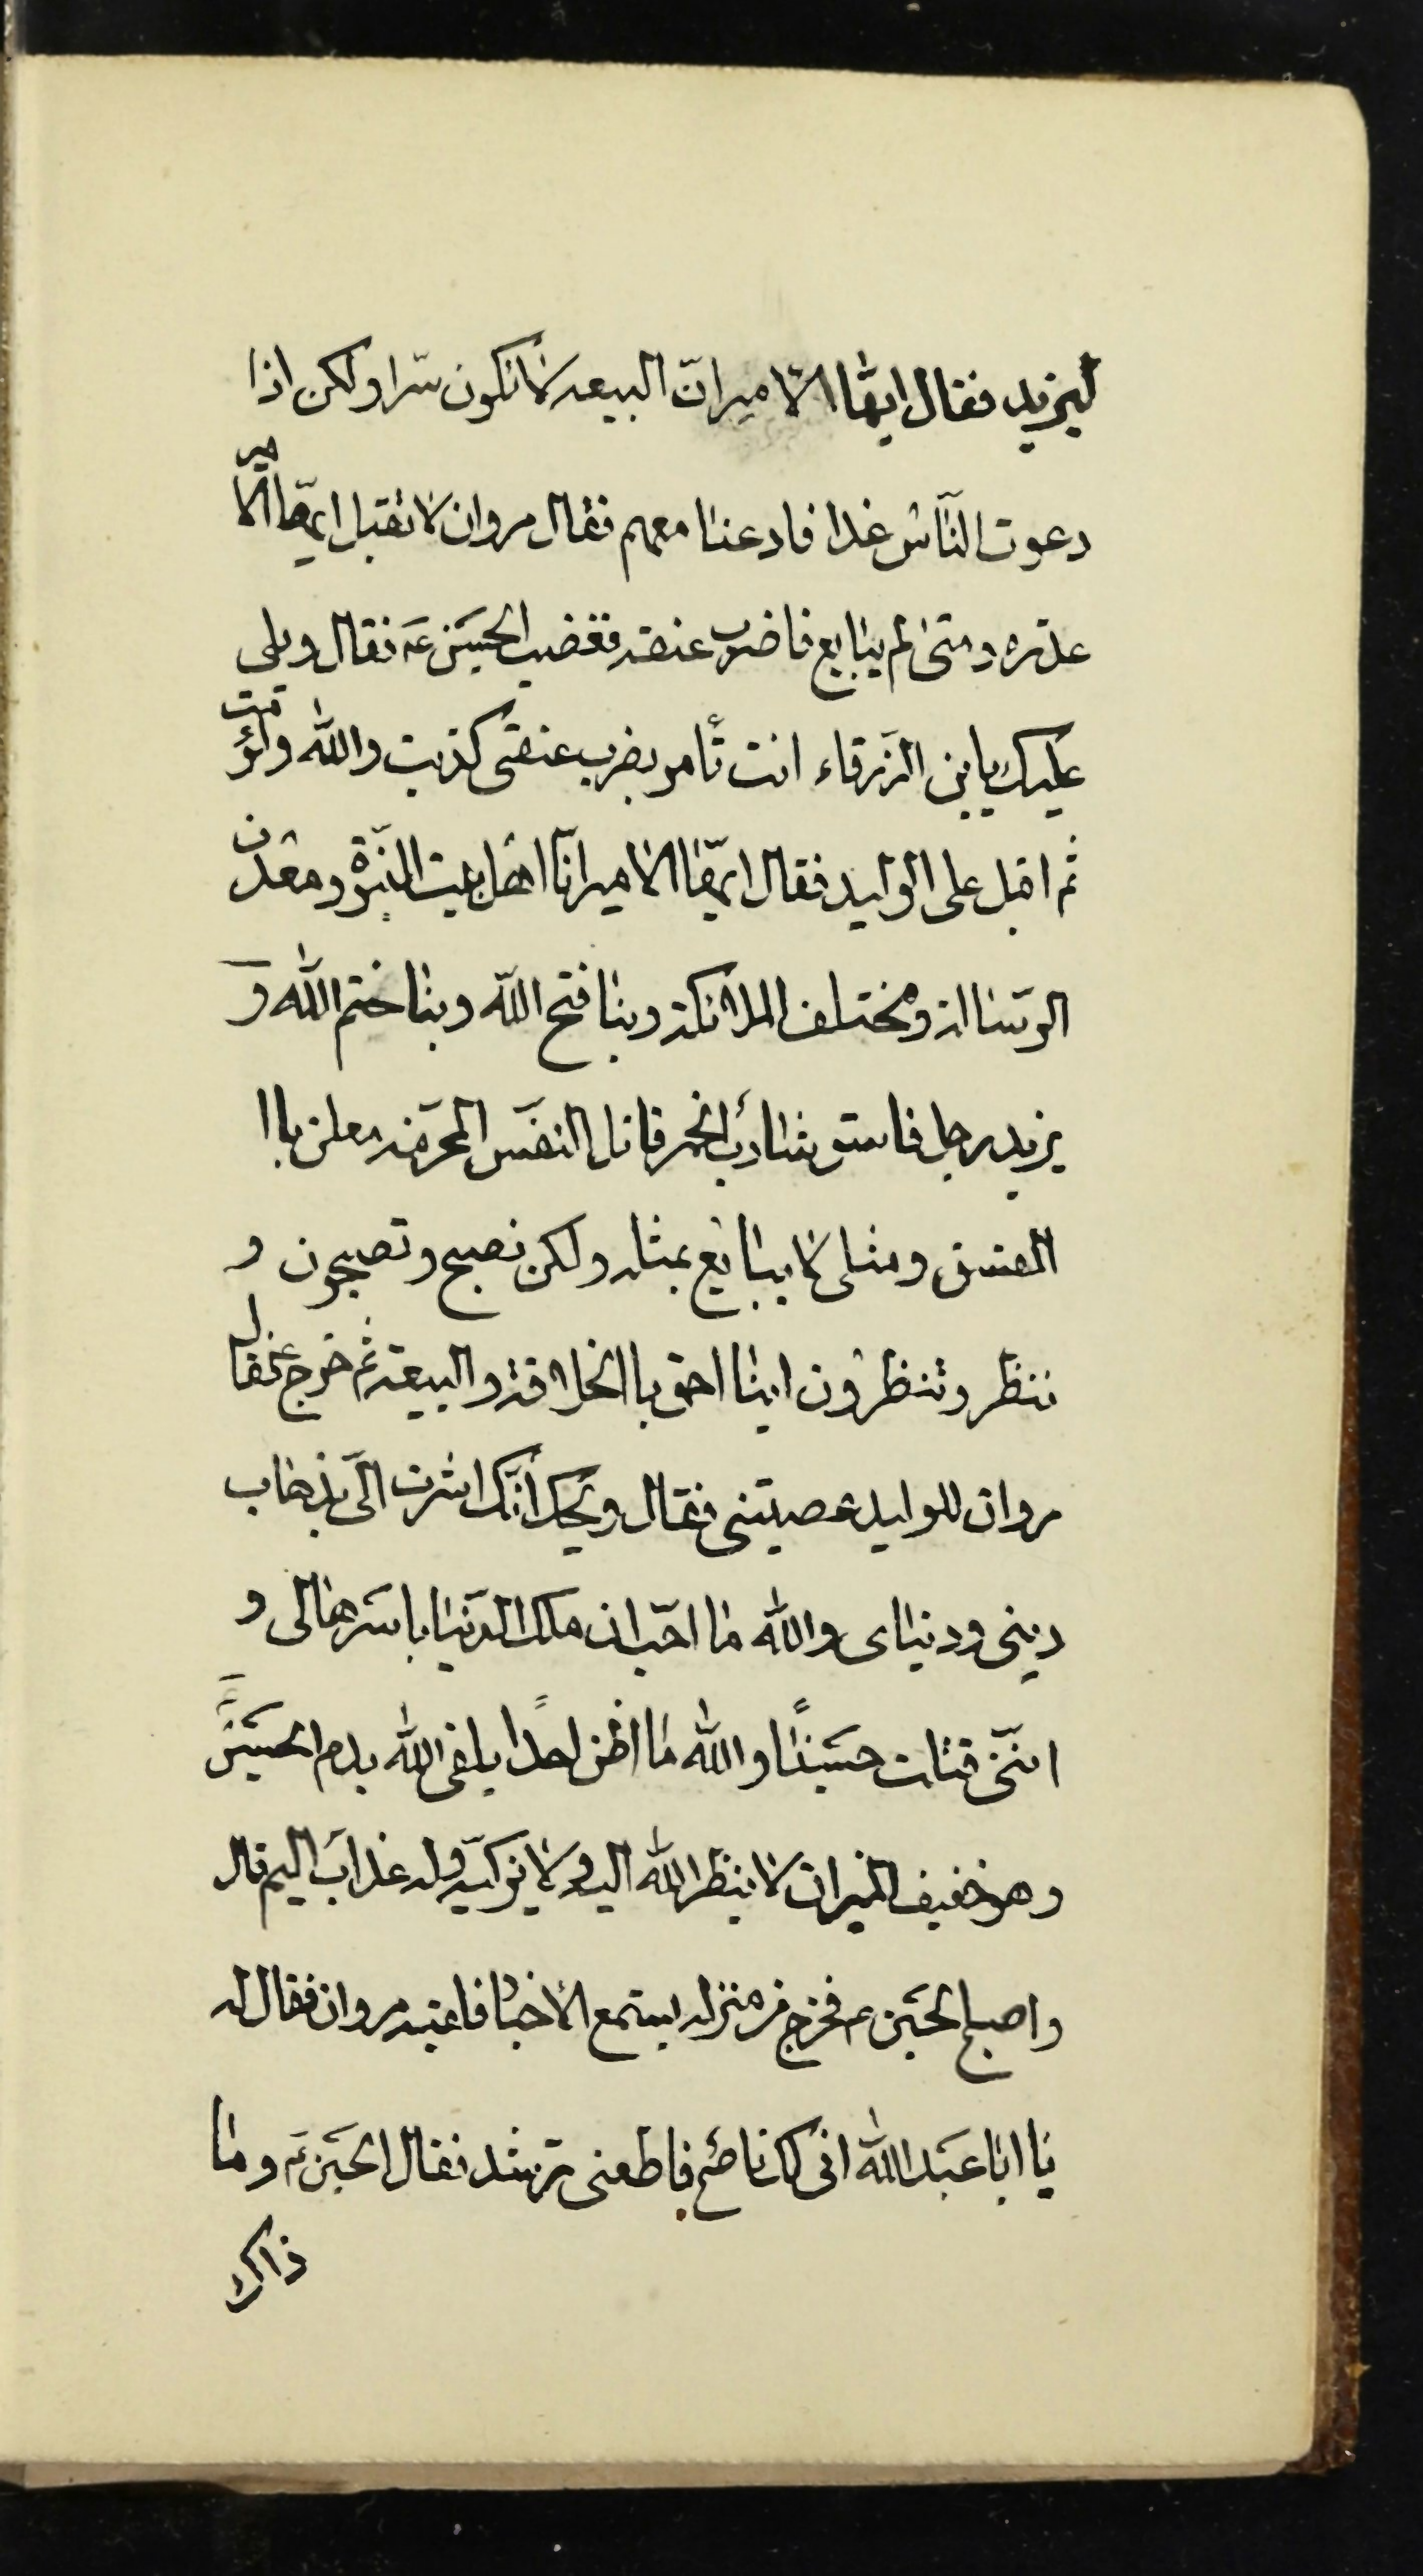 ليزيد فقال ايها الامير ان البيعه لا تكون سرا ولكن اذا
دعوت الناس غدا فادعنا معهم فقال مروان لا تقبل ايها الامير
عذره و متى لم يبايع فاضرب عنقه فغضب الحسين عه فقال ويلى
عليك يا بن الزرقاء انت تأمر بضرب عنقى كذبت والله ولؤمت
ثم اقبل على الوليد فقال ايها الامير انا اهل بيت النبوة ومعدن
الرسالة و مختلف الملائكة وبنا فتح الله وبنا ختم الله و
يزيد رجل فاسق شارب الخمر قاتل النفس المحرمه معلن باا
الفسق ومثلى لا يبايع بمثله ولكن نصبح وتصبحون و
ننظر وتنظرون اينا احق باالخلافة والبيعة ثم خرج ع فقال
مروان للوليد عصيتنى فقال ويحك انك اشرت الى بذهاب
دينى ودنياى والله ما احب ان ملك الدنيا باسرها لى و
اننى قتلت حسينا والله ما اظن احدا يلقى الله بدم الحسين
وهو خفيف الميزان لا ينظر الله اليه ولا يزكيه وله عذاب اليم قال
واصبح الحسين ع فخرج من منزله يستمع الأخبار فلقيه مروان فقال له
يا ابا عبد الله انى لك ناصح فاطعنى ترشد فقال الحسين ع وما
ذاك